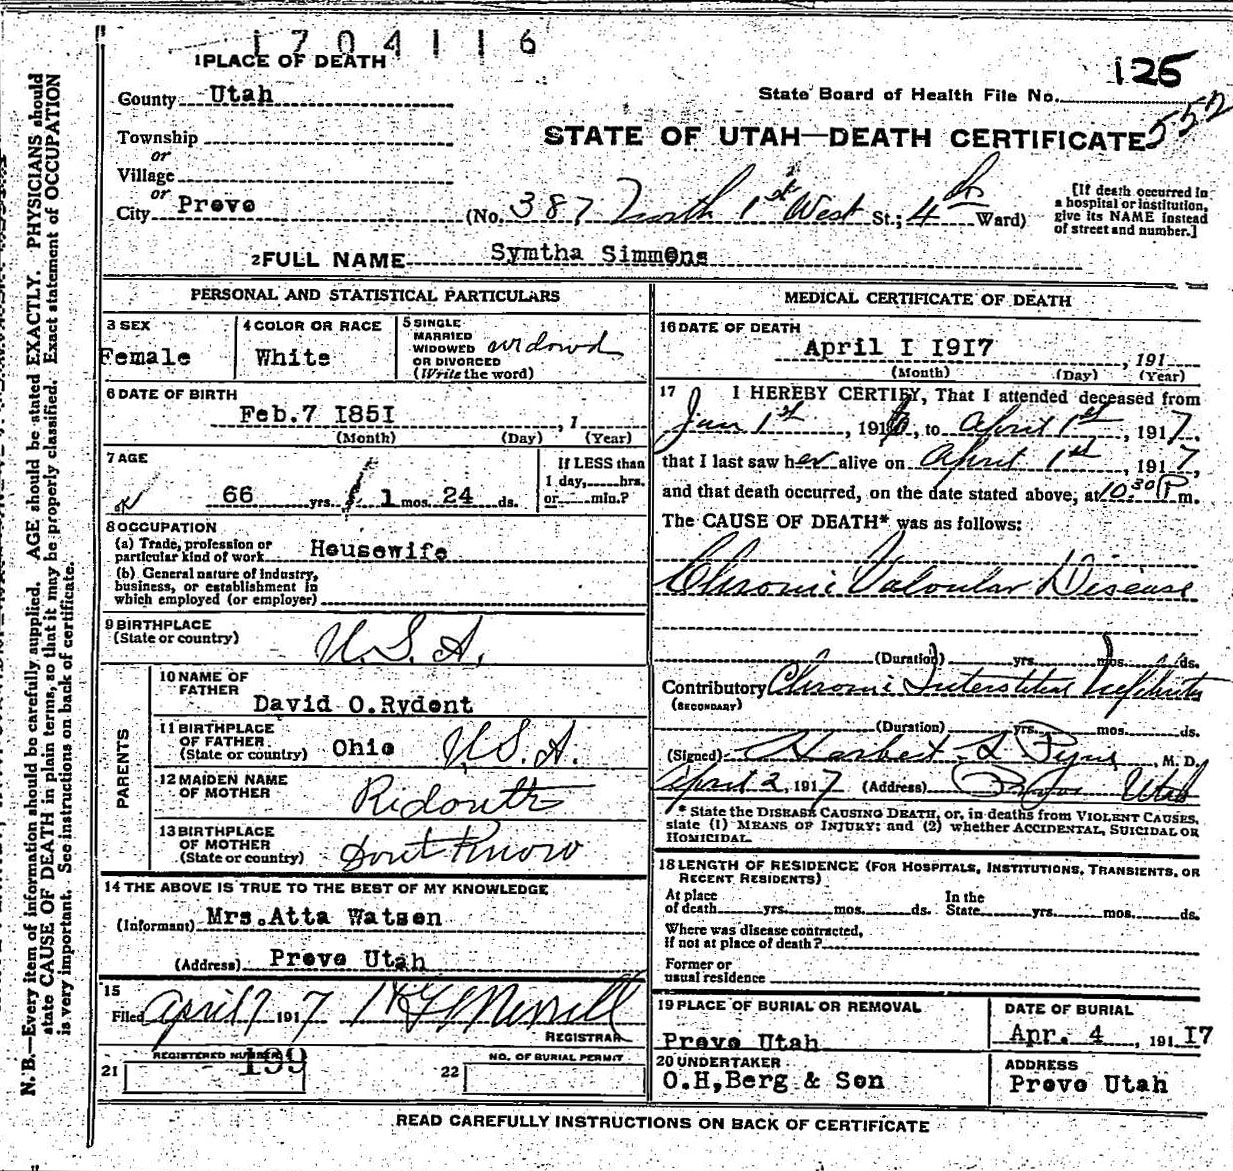 1704116
1 PLACE OF DEATH
125
County Utah
State Board of Health File No.
552
Township
STATE OF UTAH—DEATH CERTIFICATE
or
Village
or
City Provo
(No. 387 North 1st West St.; 4th Ward)
[If death occurred in
a hospital or institution,
give its NAME instead
of street and number.]
2 FULL NAME Symtha Simmons
PERSONAL AND STATISTICAL PARTICULARS
3 SEX
Female
4 COLOR OR RACE
White
5 SINGLE
MARRIED
WIDOWED
OR DIVORCED
(Write the word)
widowd
6 DATE OF BIRTH
Feb.7 I85I , 1
(Month) (Day) (Year)
7 AGE
66 yrs. 1 mos. 24 ds.
If LESS than
1 day,......hrs.
or......min.?
8 OCCUPATION
(a) Trade, profession or
particular kind of work Housewife
(b) General nature of industry,
business, or establishment in
which employed (or employer)
9 BIRTHPLACE
(State or country)
U.S.A.
PARENTS
10 NAME OF
FATHER
David O.Rydent
11 BIRTHPLACE
OF FATHER
(State or country) Ohio U.S.A.
12 MAIDEN NAME
OF MOTHER
Ridouth
13 BIRTHPLACE
OF MOTHER
(State or country)
Dont Know
14 THE ABOVE IS TRUE TO THE BEST OF MY KNOWLEDGE
(Informant) Mrs.Atta Watson
(Address) Provo Utah
15
Filed April 7 1917 Merrill
REGISTRAR
REGISTERED NUMBER
21 199
NO. OF BURIAL PERMIT
22
MEDICAL CERTIFICATE OF DEATH
16 DATE OF DEATH
April I I9I7 , 191
(Month) (Day) (Year)
17 I HEREBY CERTIFY, That I attended deceased from
Jan 1st , 191 , to April 1st , 1917.
that I last saw her alive on April 1st , 1917,
and that death occurred, on the date stated above, at 10:30 P m.
The CAUSE OF DEATH* was as follows:
Chronic Valvular Disease
(Duration) yrs. mos. ds.
Contributory Chronic Interstitial Nephritis
(SECONDARY)
(Duration) yrs. mos. ds.
(Signed) Herbert S. Pyne , M. D.
April 2, 1917 (Address) Provo Utah
* State the DISEASE CAUSING DEATH, or, in deaths from VIOLENT CAUSES,
state (1) MEANS OF INJURY; and (2) whether ACCIDENTAL, SUICIDAL OR
HOMICIDAL.
18 LENGTH OF RESIDENCE (FOR HOSPITALS, INSTITUTIONS, TRANSIENTS, OR
RECENT RESIDENTS)
At place In the
of death yrs. mos. ds. State yrs. mos. ds.
Where was disease contracted,
if not at place of death?
Former or
usual residence
19 PLACE OF BURIAL OR REMOVAL
Provo Utah
DATE OF BURIAL
Apr. 4 , 191 I7
20 UNDERTAKER
O.H,Berg & Son
ADDRESS
Provo Utah
READ CAREFULLY INSTRUCTIONS ON BACK OF CERTIFICATE
N. B.—Every item of information should be carefully supplied. AGE should be stated EXACTLY. PHYSICIANS should
state CAUSE OF DEATH in plain terms, so that it may be properly classified. Exact statement of OCCUPATION
is very important. See instructions on back of certificate.